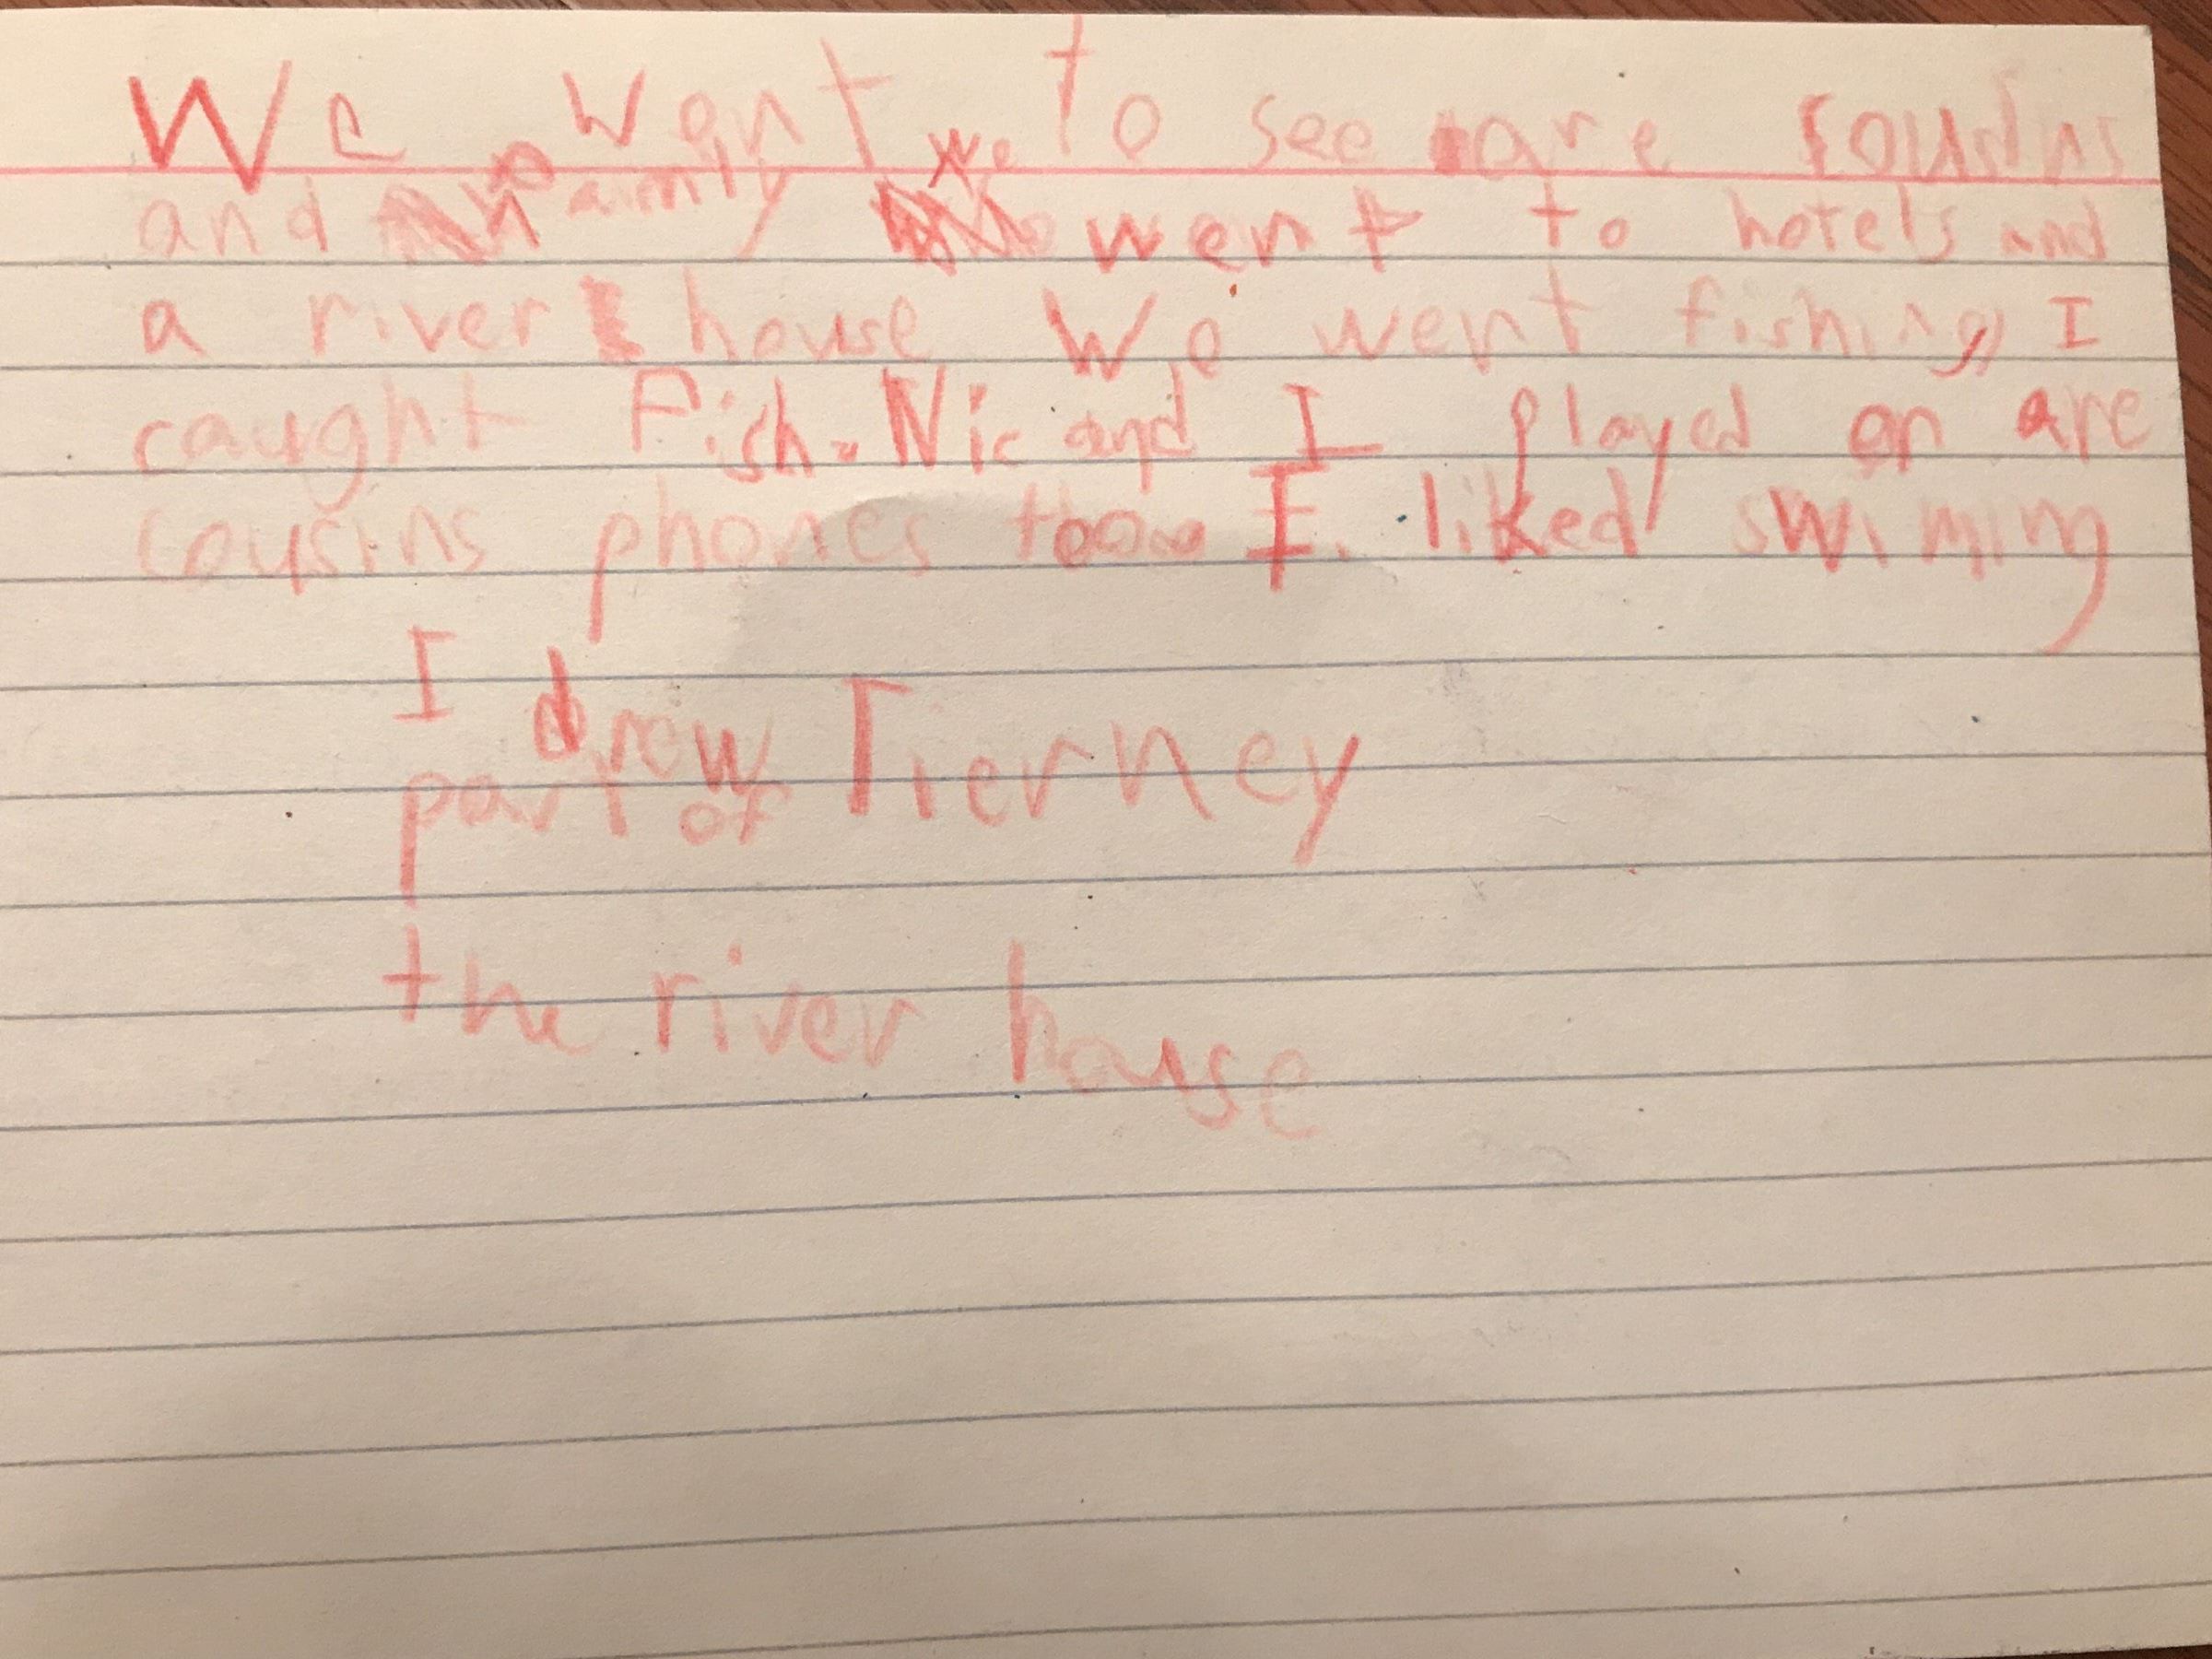 We went to see are cousins
and family We went to hotels and
a river house We went fishing, I
caught Fish. Nic and I played on are
cousins phones too. I liked swiming
I drew
part of Tierney
the river house